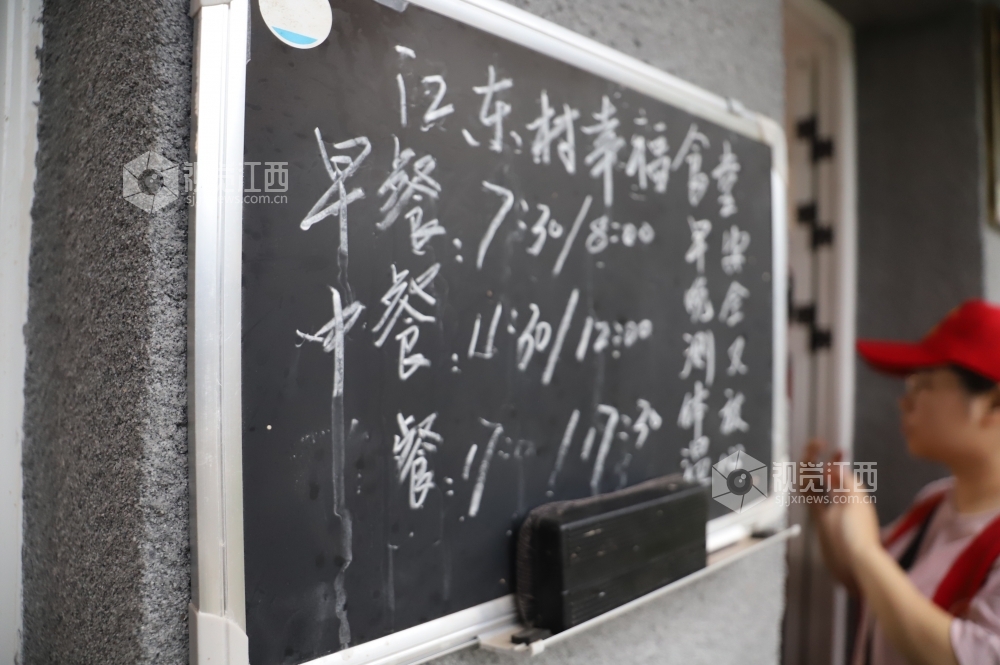 江东村幸福食堂
早餐:7:30/8:00
中餐:11:30/12:00
餐:17: /17:30
早晚测体温
安全又放
视觉江西
sjjxnews.com.cn
视觉江西
sjjxnews.com.cn